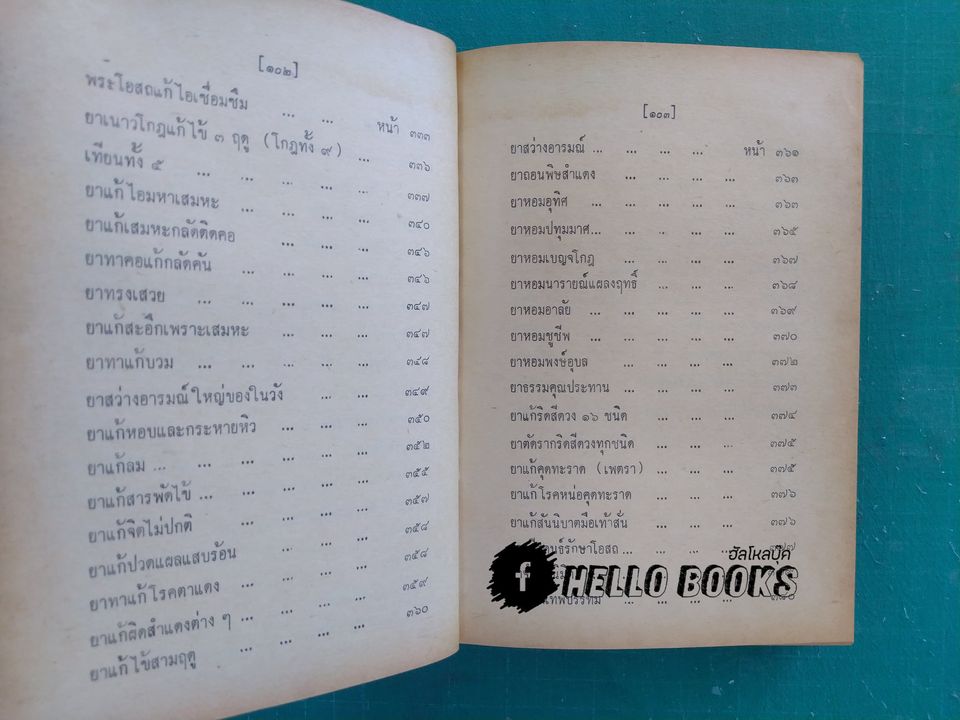 [๑๐๒]
พระโอสถแก้ไอเชื่อมซึม ... ... หน้า ๓๓๓
ยาเนาวโกฎแก้ไข้ ๓ ฤดู (โกฎทั้ง ๙) ... ๓๓๖
เทียนทั้ง ๕ ... ... ... ... ... ๓๓๗
ยาแก้ไอมหาเสมหะ ... ... ... ... ๓๔๐
ยาแก้เสมหะกลัดติดคอ ... ... ... ๓๔๖
ยาทาคอแก้กลัดคัน ... ... ... ... ๓๔๖
ยาทรงเสวย ... ... ... ... ... ๓๔๗
ยาแก้สะอึกเพราะเสมหะ ... ... ... ๓๔๗
ยาทาแก้บวม ... ... ... ... ... ๓๔๘
ยาสว่างอารมณ์ใหญ่ของในวัง ... ... ๓๔๙
ยาแก้หอบและกระหายหิว ... ... ... ๓๕๐
ยาแก้ลม ... ... ... ... ... ๓๕๒
ยาแก้สารพัดไข้ ... ... ... ... ... ๓๕๕
ยาแก้จิตไม่ปกติ ... ... ... ... ๓๕๗
ยาแก้ปวดแผลแสบร้อน ... ... ... ๓๕๘
ยาทาแก้โรคตาแดง ... ... ... ... ๓๕๘
ยาแก้ผิดสำแดงต่าง ๆ ... ... ... ... ๓๕๙
ยาแก้ไข้สามฤดู ... ... ... ... ๓๖๐
[๑๐๓]
ยาสว่างอารมณ์ ... ... ... ... หน้า ๓๖๑
ยาถอนพิษสำแดง ... ... ... ... ๓๖๓
ยาหอมอุทิศ ... ... ... ... ... ๓๖๓
ยาหอมปทุมมาศ... ... ... ... ... ๓๖๕
ยาหอมเบญจโกฎ ... ... ... ... ๓๖๗
ยาหอมนารายณ์แผลงฤทธิ์ ... ... ... ๓๖๘
ยาหอมอาลัย ... ... ... ... ... ๓๖๙
ยาหอมชูชีพ ... ... ... ... ... ๓๗๐
ยาหอมพงษ์อุบล ... ... ... ... ๓๗๒
ยาธรรมคุณประทาน ... ... ... ... ๓๗๓
ยาแก้ริดสีดวง ๑๖ ชนิด ... ... ... ๓๗๔
ยาตัดรากริดสีดวงทุกชนิด ... ... ... ๓๗๕
ยาแก้คุดทะราด (เพตรา) ... ... ... ๓๗๕
ยาแก้โรคหน่อคุดทะราด ... ... ... ๓๗๖
ยาแก้สันนิบาตมือเท้าสั่น ... ... ... ๓๗๖
รักษาโอสถ ... ... ... ... ๓๗๗
ฮัลโหลบุ๊ค
f HELLO BOOKS